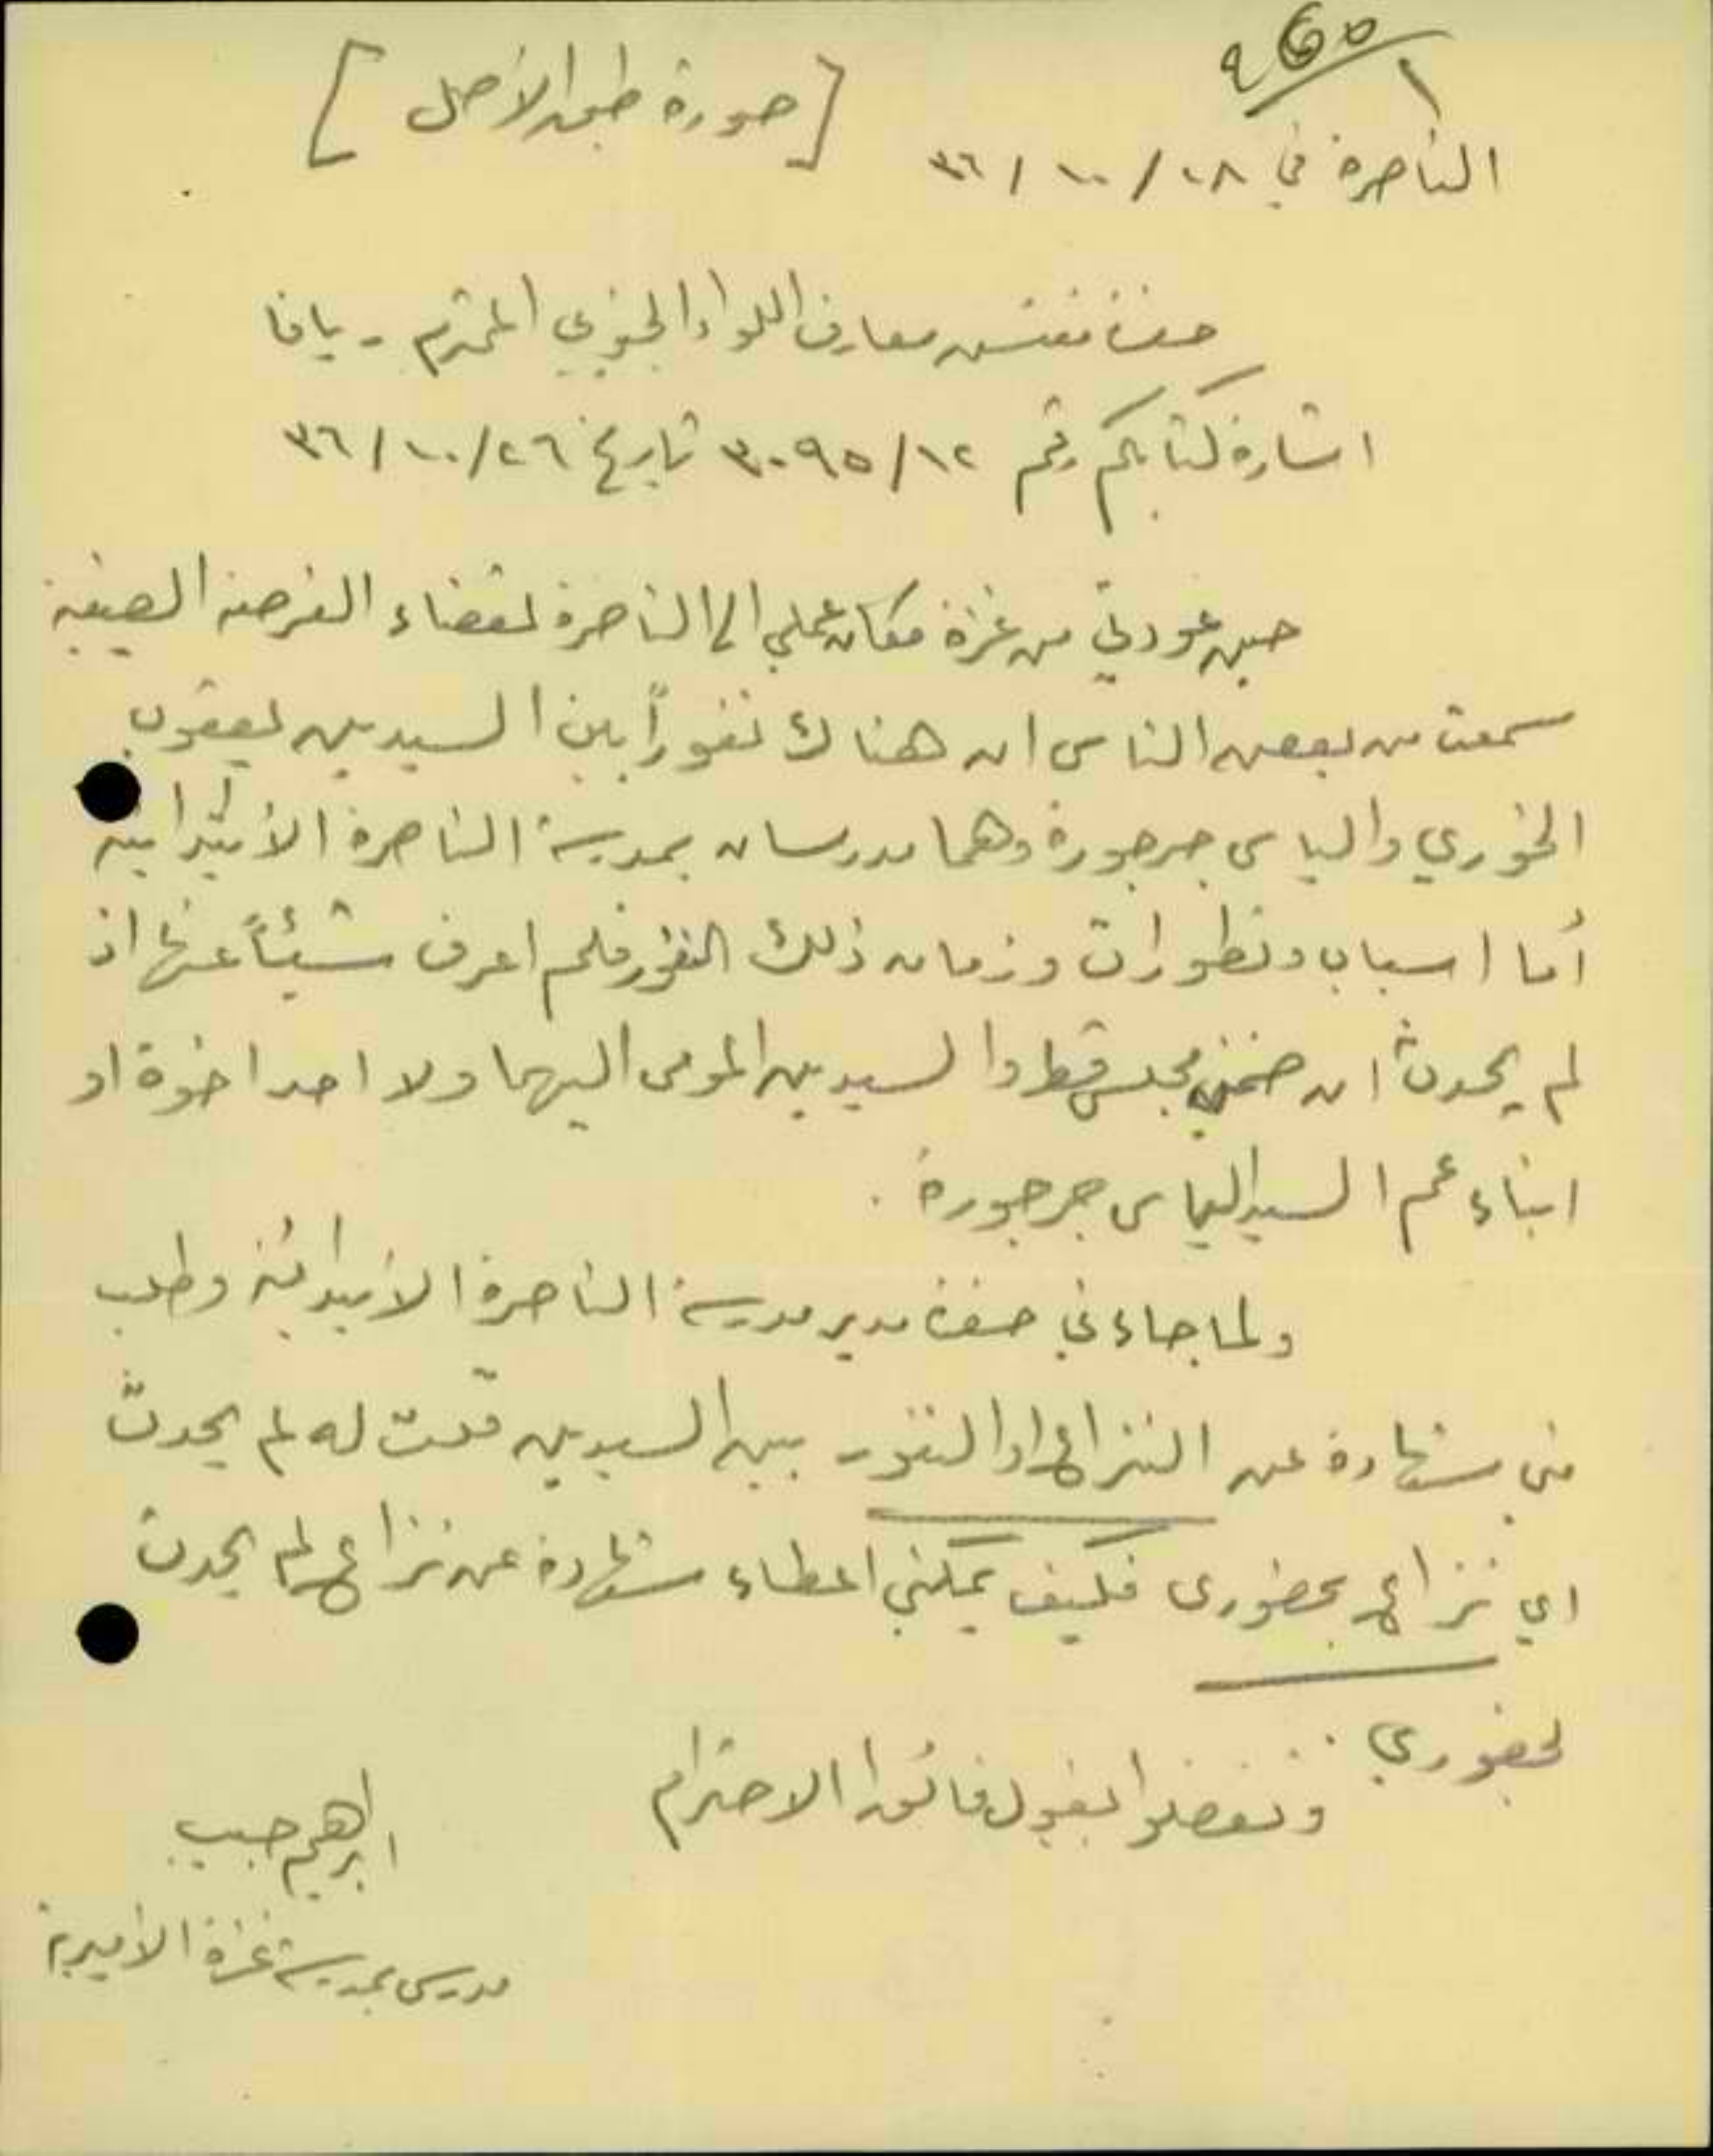 [صورة طبق الأصل]
الناصرة في ٢٨/١٠/٣٦
حضرة مفتش معارف اللواء الجنوبي المحترم - يافا
اشارة لكتابكم رقم ٣٠٩٥/١٢ تاريخ ٢٦/١٠/٣٦
حين عودتي من غزة مكان عملي الى الناصرة لقضاء الفرصة الصيفية
سمعت من بعض الناس ان هناك نفوراً بين السيدين يعقوب
الخوري والياس جرجورة وهما مدرسان بمدرسة الناصرة الأبتدائية
أما اسباب وتطورات وزمان ذلك النفور فلم اعرف شيئاً عنها اذ
لم يحدث ان ضمني مجلس قط والسيدين المومى اليهما ولا احد اخوة او
ابناء عم السيد الياس جرجورة .
ولما جاءني حضرة مدير مدرسة الناصرة الأبتدائية وطلب
مني شهادة عن النزاع او النفور بين السيدين قلت له لم يحدث
اي نزاع بحضوري فكيف يمكنني اعطاء شهادة عن نزاع لم يحدث
بحضوري .
وتفضلوا بقبول فائق الاحترام
ابراهيم حبيب
مدرس بمدرسة غزة الأميرية